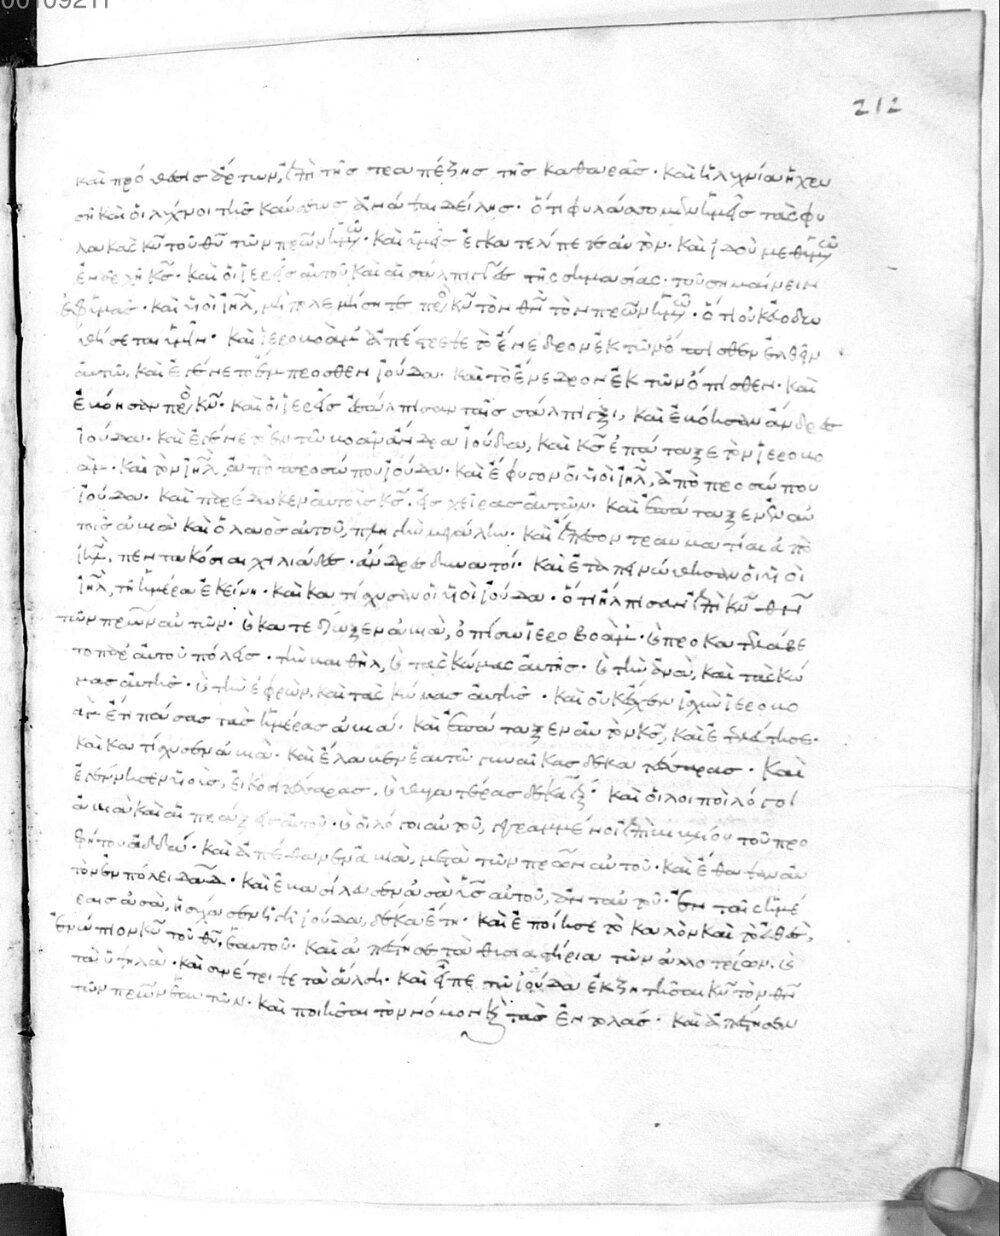 00109211
212
καὶ πρόθεσις ἄρτων, ἐπὶ τῆς τραπέζης τῆς καθαρᾶς· καὶ ἡ λυχνία ἡ χρυ
σῆ καὶ οἱ λύχνοι τῆς καύσεως ἀνάψαι δείλης· ὅτι φυλάσσομεν ἡμεῖς τὰς φυ
λακὰς κῦ τοῦ θῦ τῶν πρῶν ἡμῶν· καὶ ὑμεῖς ἐγκατελίπετε αὐτόν· καὶ ἰδοὺ μεθ ἡμῶν
ἐν ἀρχῆ κς· καὶ οἱ ἱερεῖς αὐτοῦ καὶ αἱ σάλπιγγες τῆς σημασίας· τοῦ σημαίνειν
ἐφ ὑμᾶς· καὶ υἱοὶ ιηλ, μὴ πολεμήσητε πρὸ κν τὸν θν τὸν πρων ἡμῶν· ὅτι οὐκ εὐοδω
θήσεται ὑμῖν· καὶ ἱεροβοὰμ ἀπέστρεψε τὸ ἔνεδρον ἐκ τῶν ὄπισθεν ἐλθεῖν
αὐτῶ, καὶ ἐγένετο ἔμπροσθεν ἰούδα· καὶ τὸ ἔνεδρον ἐκ τῶν ὄπισθεν· καὶ
ἐβόησαν πρὸ κν· καὶ οἱ ἱερεῖς ἐσάλπισαν ταῖς σάλπιγξι, καὶ ἐβόησαν ἄνδρες
ἰούδα· καὶ ἐγένετο ἐν τῶ βοᾶν ἄνδρας ἰούδα, καὶ κς ἐπάταξε τὸν ἱεροβο
ὰμ· καὶ τὸν ιηλ, ἀπὸ προσώπου ἰούδα· καὶ ἔφυγον οἱ υἱοὶ ιηλ, ἀπὸ προσώπου
ἰούδα· καὶ παρέδωκεν αὐτοὺς κς, εἰς χεῖρας αὐτῶν· καὶ ἐπάταξεν ἐν αὐ
τοῖς ἀβιὰ καὶ ὁ λαὸς αὐτοῦ, πληγὴν μεγάλην· καὶ ἔπεσον τραυματίαι ἀπὸ
ιηλ, πεντακόσιαι χιλιάδες· ἄνδρες δυνατοί· καὶ ἐταπεινώθησαν οἱ υἱοὶ
ιηλ, τῆ ἡμέρα ἐκείνη· καὶ κατίσχυσαν οἱ υἱοὶ ἰούδα· ὅτι ἤλπισαν ἐπὶ κν θν
τῶν πρων αὐτῶν· καὶ κατεδίωξεν ἀβιὰ, ὀπίσω ἱεροβοάμ· καὶ προκατελάβε
το παρ αὐτοῦ πόλεις· τὴν βαιθὴλ, καὶ τὰς κώμας αὐτῆς· καὶ τὴν ἀνὰ, καὶ τὰς κώ
μας αὐτῆς· καὶ τὴν ἐφρὼν, καὶ τὰς κώμας αὐτῆς· καὶ οὐκ ἔσχεν ἰσχὺν ἱεροβο
ὰμ ἔτι πάσας τὰς ἡμέρας ἀβιά· καὶ ἐπάταξεν αὐτὸν κς, καὶ ἐτελεύτησε·
καὶ κατίσχυσεν ἀβιὰ· καὶ ἔλαβεν ἑαυτῶ γυναῖκας δεκατέσσαρας· καὶ
ἐγέννησεν υἱοὺς, εἰκοσιτέσσαρας, καὶ θυγατέρας δεκαὲξ· καὶ οἱ λοιποὶ λόγοι
ἀβιὰ καὶ αἱ πράξεις αὐτοῦ· καὶ οἱ λόγοι αὐτοῦ, γεγραμμένοι ἐπὶ βιβλίου τοῦ προ
φήτου ἀδδώ· καὶ ἀπέθανεν ἀβιὰ, μετὰ τῶν πρων αὐτοῦ· καὶ ἔθαψαν αὐ
τὸν ἐν πόλει δαδ· καὶ ἐβασίλευσεν ἀσὰ υἱς αὐτοῦ, ἀντ αὐτοῦ· ἐν ταῖς ἡμέ
ραις ἀσὰ, ἡσύχασεν ἡ γῆ ἰούδα, δέκα ἔτη· καὶ ἐποίησε τὸ καλὸν καὶ τὸ εὐθὲς,
ἐνώπιον κῦ τοῦ θῦ, ἑαυτοῦ· καὶ ἀπέστησε τὰ θυσιαστήρια τῶν ἀλλοτρίων, καὶ
τὰ ὑψηλὰ· καὶ συνέτριψε τὰ ἄλση· καὶ εἶπε τῶ ἰούδα ἐκζητῆσαι κν τὸν θν
τῶν πρων ἑαυτῶν· καὶ ποιῆσαι τὸν νόμον καὶ τὰς ἐντολάς· καὶ ἀπέστησεν